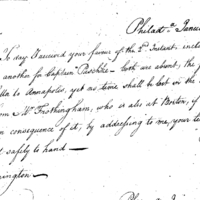 Philad.ª Janu
To day I received your favour of the 3.d Instant. incl
another for Captain Paschke – both are about, the
to Annapolis, yet as time shall be lost in the
om Mr Frothingham, who is also at Boston, if
n consequence of it; by addressing to me, your le
safely to hand —
ington —